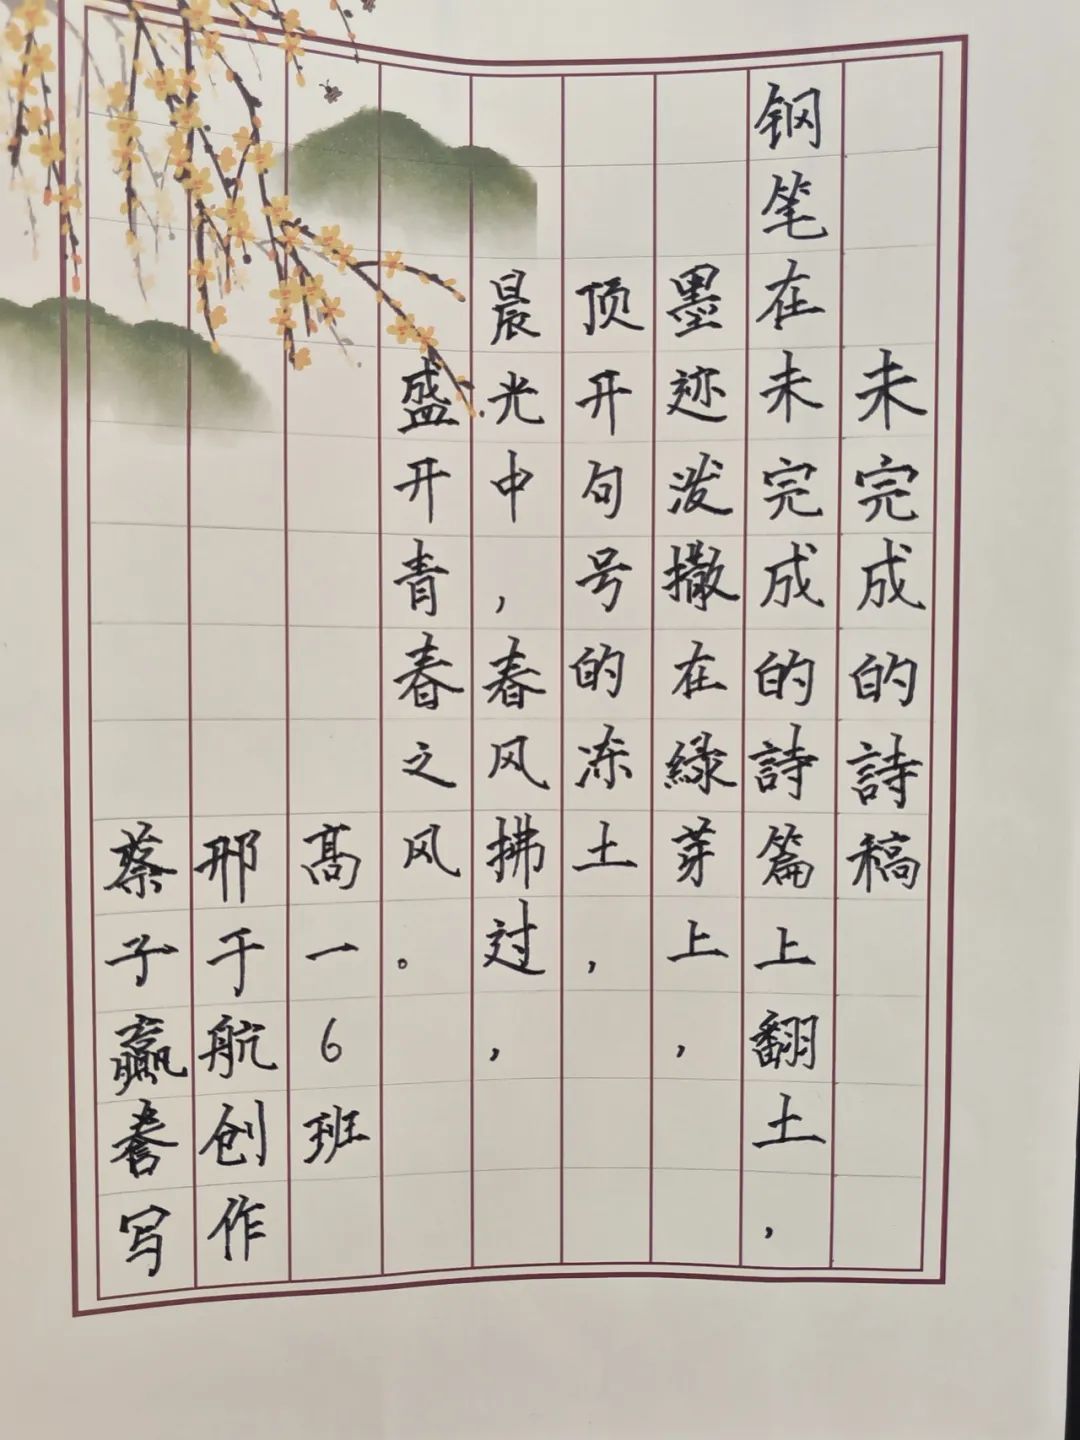 未完成的詩稿
钢笔在未完成的詩篇上翻土，
墨迹泼撒在綠芽上，
顶开句号的冻土，
晨光中，春风拂过，
盛开青春之风。
高一6班
邢于航创作
蔡子赢誊写